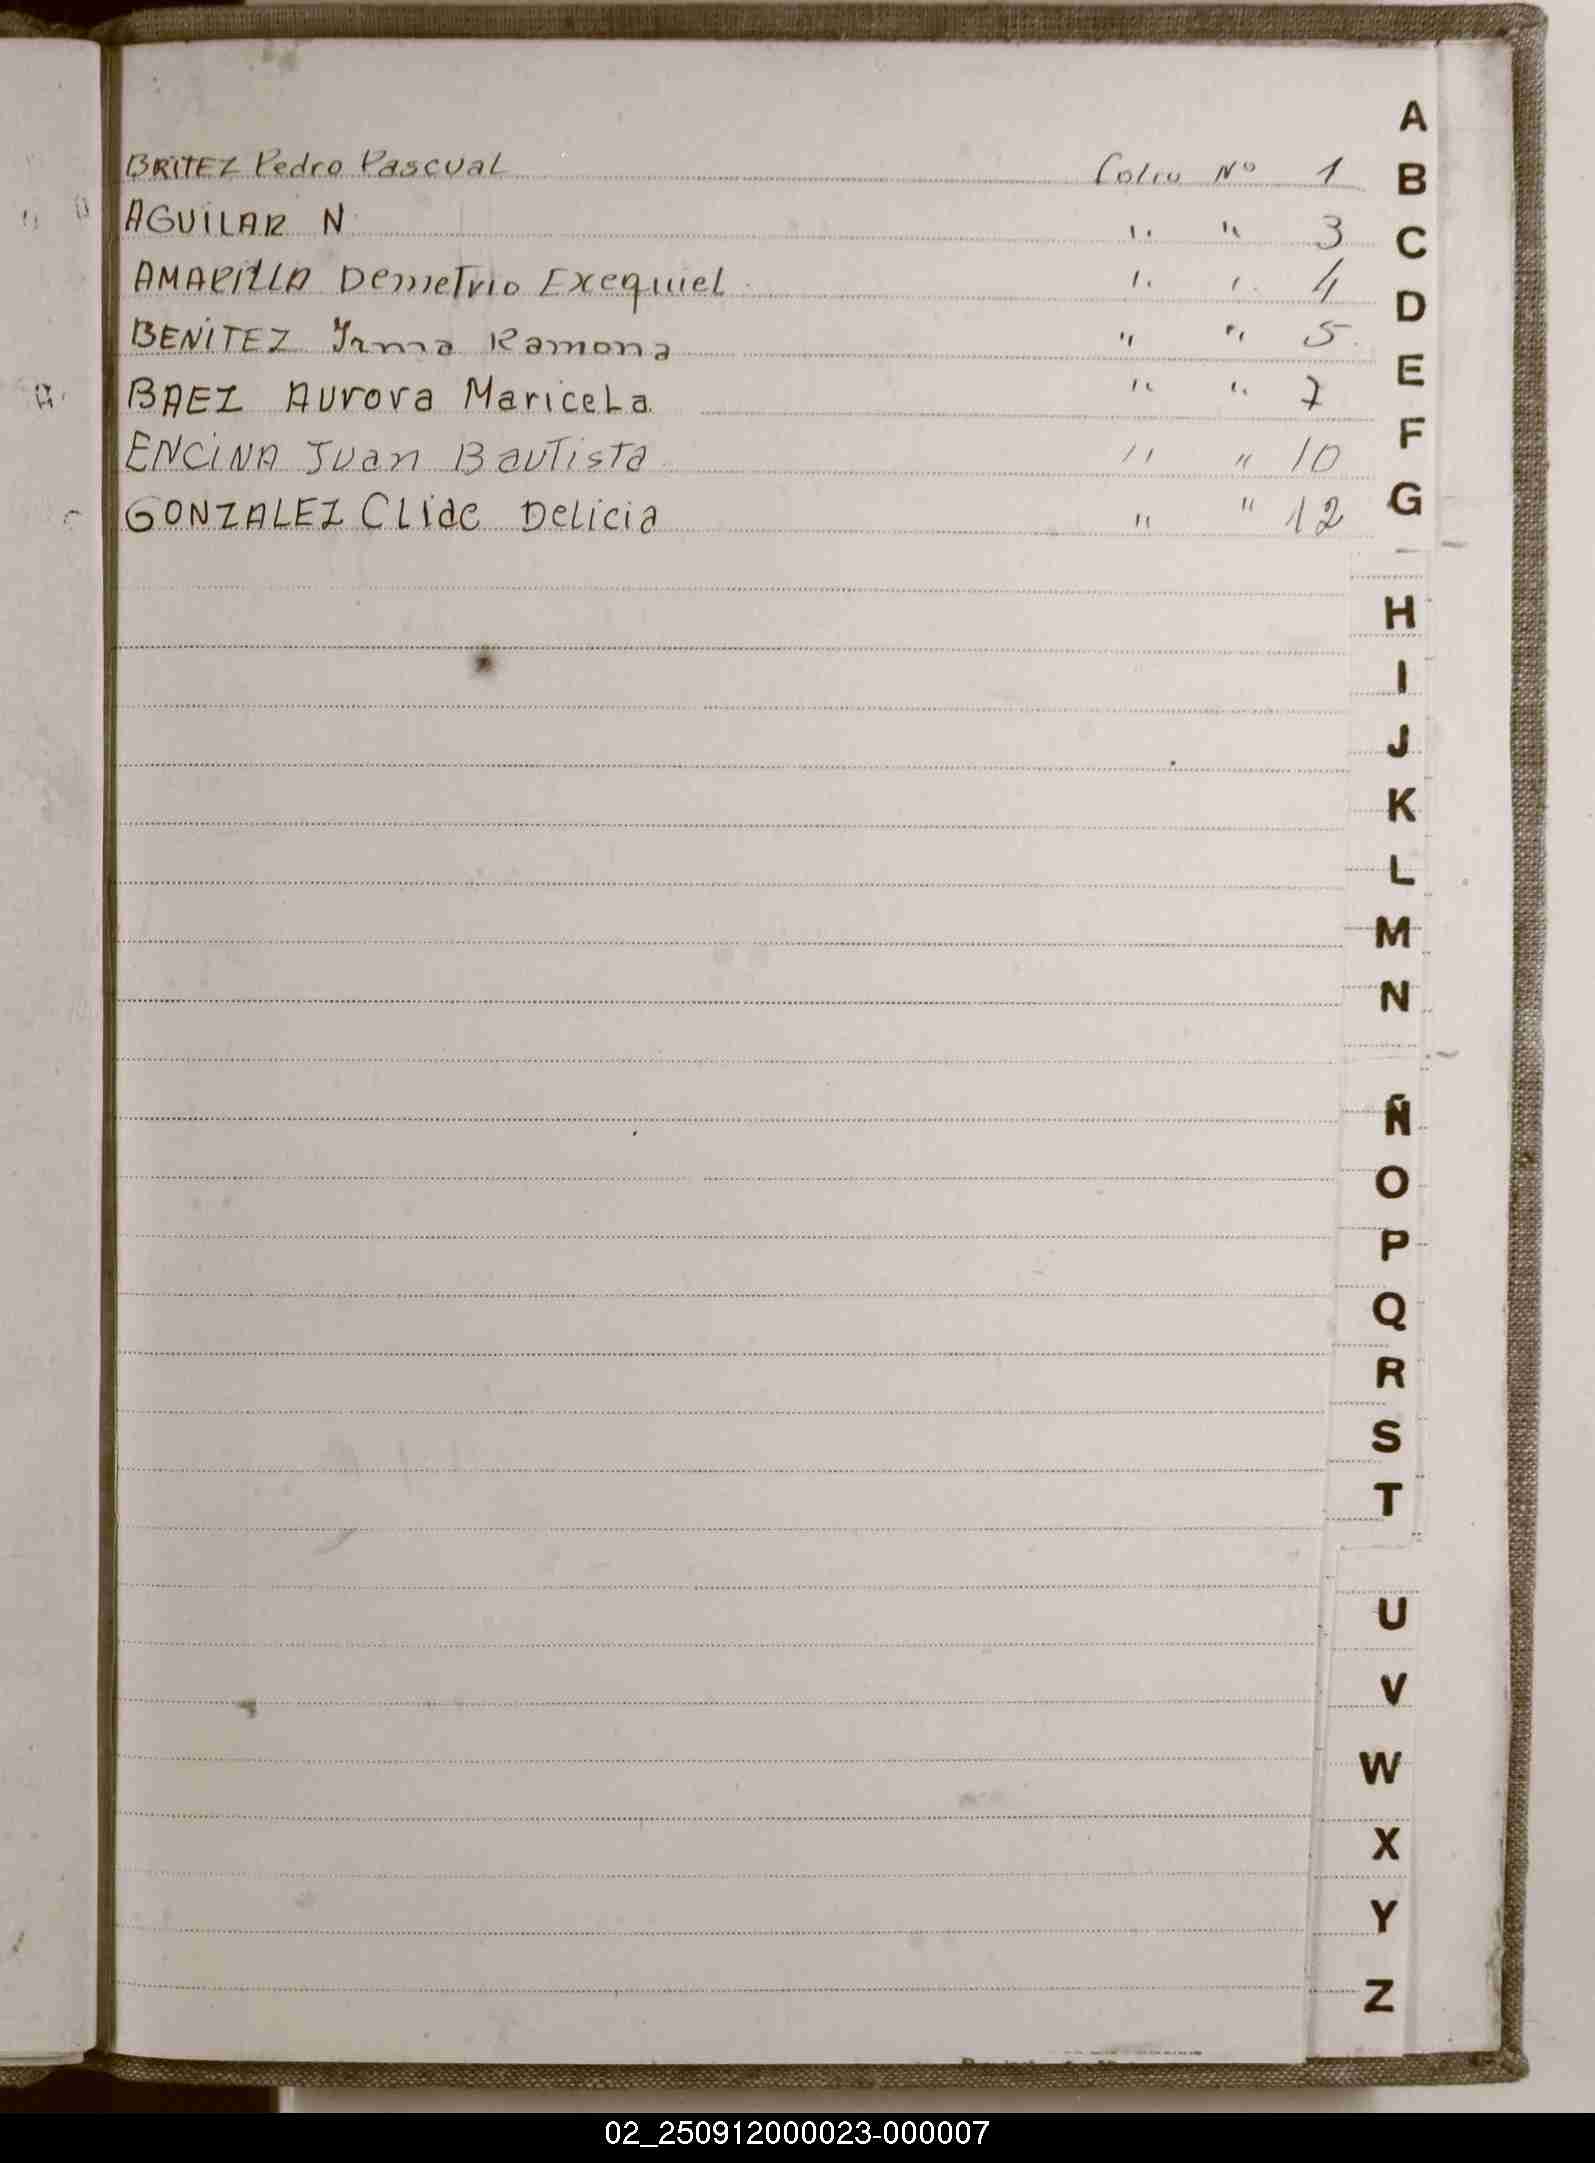 BRITEZ Pedro Pascual Folio Nº 1
AGUILAR N " " 3
AMARILLA Demetrio Exequiel " " 4
BENITEZ Irma Ramona " " 5
BAEZ Aurora Maricela " " 7
ENCINA Juan Bautista " " 10
GONZALEZ Clide Delicia " " 12
A
B
C
D
E
F
G
H
I
J
K
L
M
N
Ñ
O
P
Q
R
S
T
U
V
W
X
Y
Z
02_250912000023-000007